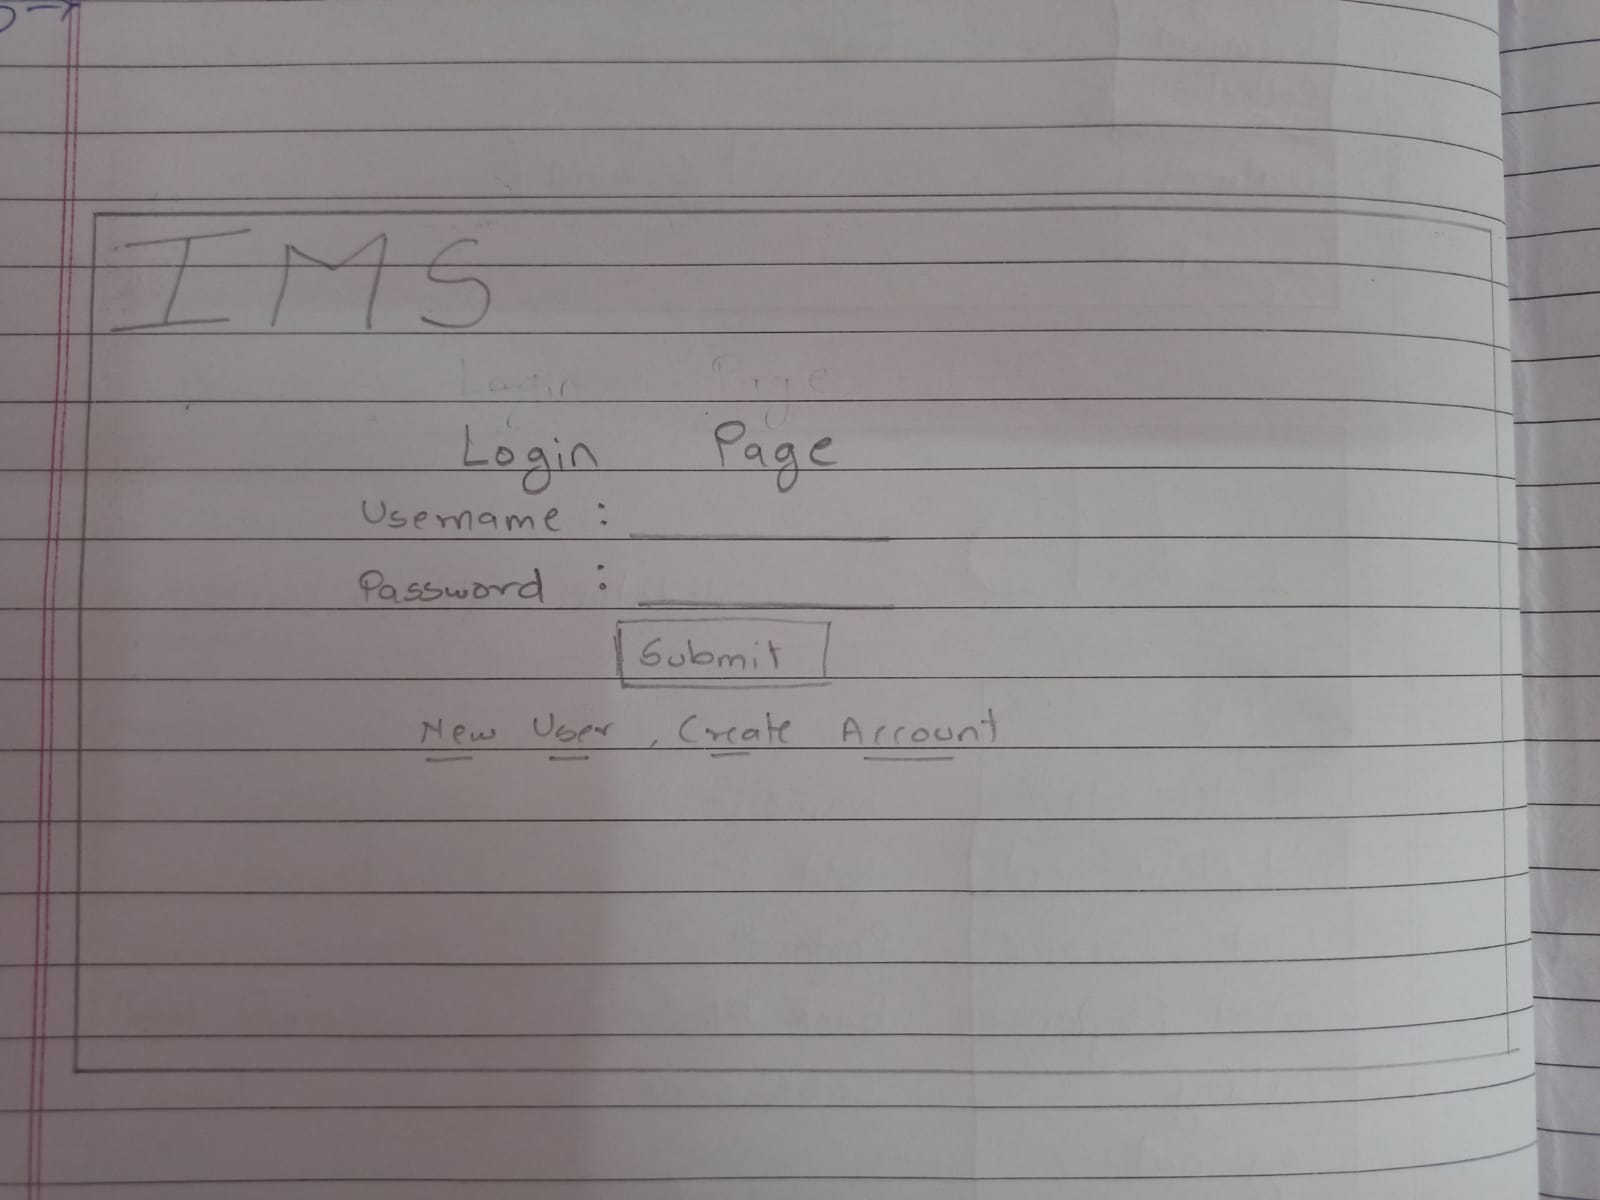 IMS
Login Page
Login Page
Username :
Password :
Submit
New User, Create Account